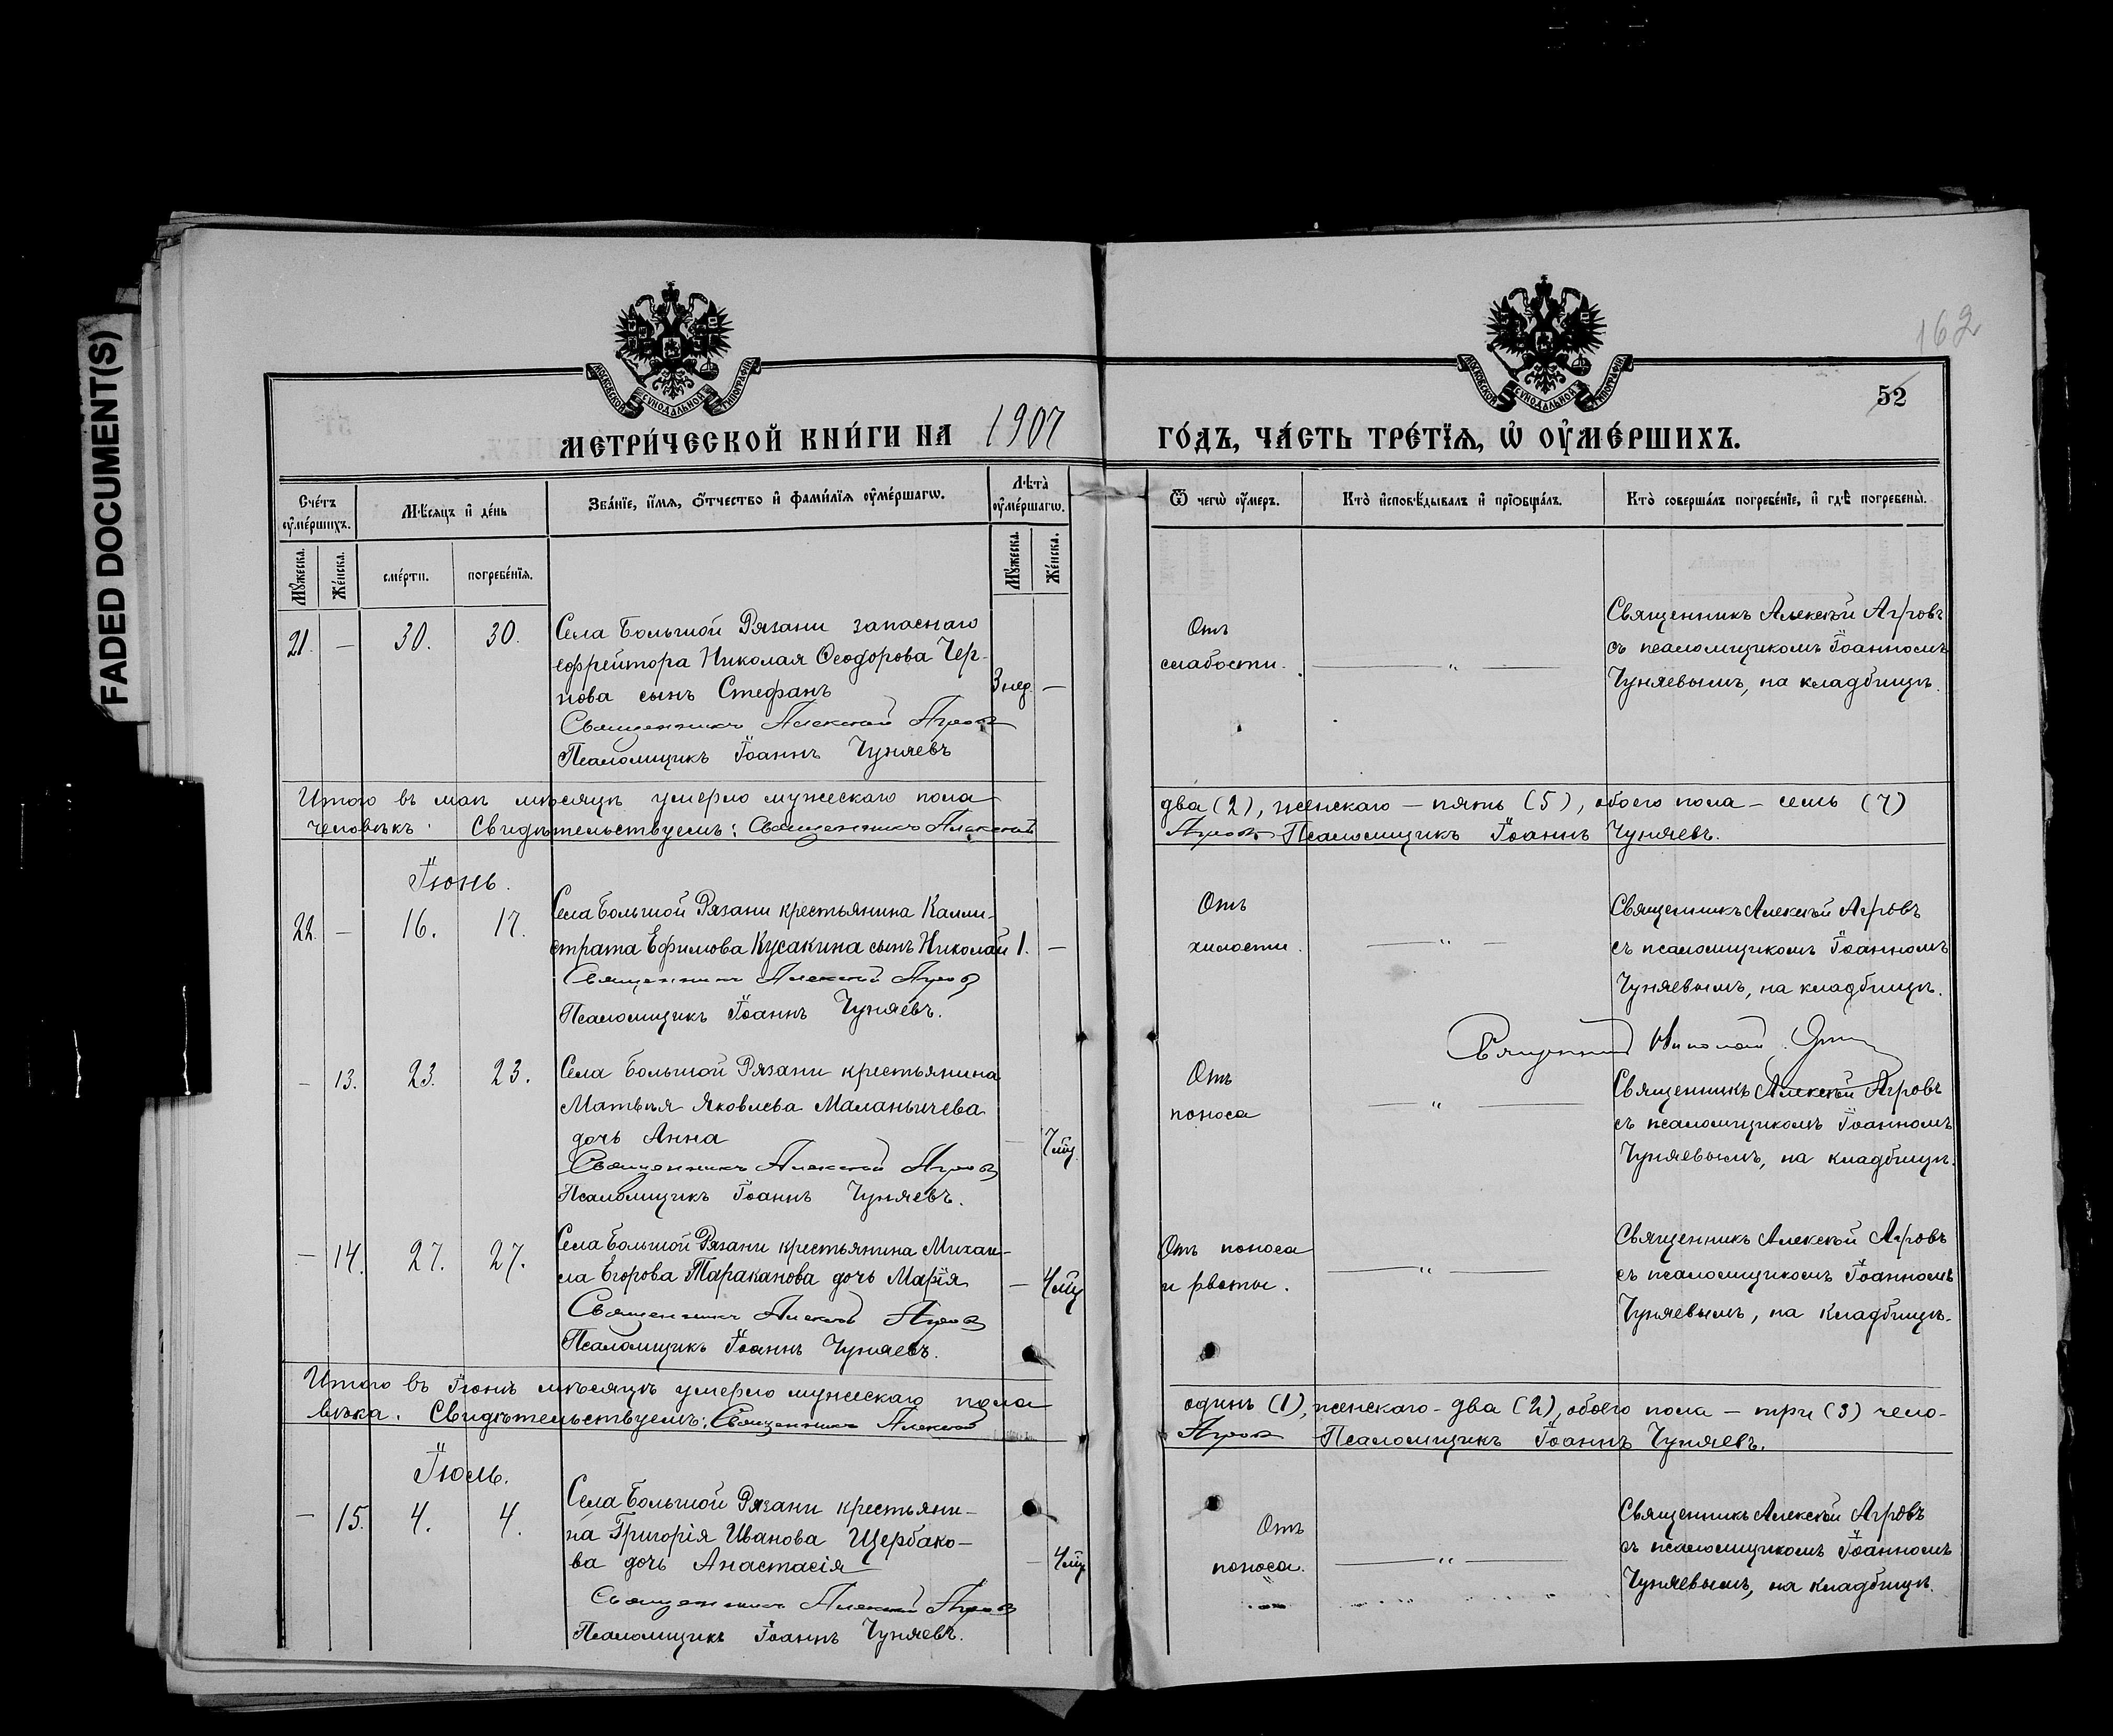 FADED DOCUMENT(S)
162
52
МОСКОВСКОЙ СѴНОДАЛЬНОЙ ТИПОГРАФІИ
МОСКОВСКОЙ СѴНОДАЛЬНОЙ ТИПОГРАФІИ
МЕТРИ́ЧЕСКОЙ КНИ́ГИ НА 1907 ГО́ДЪ, ЧА́СТЬ ТРЕ́ТЇѦ, Ѡ҆ ОУ҆МЕ́РШИХЪ.
Сче́тъ оу҆ме́ршихъ.
Мѣ́сяцъ и҆ де́нь
Зва́нїе, и҆́мѧ, ѻ҆́тчество и҆ фами́лїѧ оу҆ме́ршагѡ.
Лѣ́та̀ оу҆ме́ршагѡ.
Ѿ чегѡ̀ оу҆́меръ.
Кто̀ и҆сповѣ́дывалъ и҆ прїѡбща́лъ.
Кто̀ соверша́лъ погребе́нїе, и҆ гдѣ̀ погребены̀.
Мꙋ́жеска.
Же́нска.
сме́рти.
погребе́нїѧ.
Мꙋ́жеска.
Же́нска.
21. — 30. 30.
Села Большой Рязани запаснаго
ефрейтора Николая Ѳеодорова Чер-
нова сынъ Стефанъ
3 нед. —
Священникъ Алексѣй Агровъ
Псаломщикъ Іоаннъ Чуняевъ
Отъ
слабости.
— „ —
Священникъ Алексѣй Агровъ
съ псаломщикомъ Іоанномъ
Чуняевымъ, на кладбищѣ.
Итого въ маѣ мѣсяцѣ умерло мужескаго пола два (2), женскаго — пять (5), обоего пола — семь (7)
человѣкъ. Свидѣтельствуемъ: Священникъ Алексѣй Агровъ Псаломщикъ Іоаннъ Чуняевъ.
Іюнь.
22. — 16. 17.
Села Большой Рязани крестьянина Калли-
страта Ефимова Кусакина сынъ Николай
1. —
Священникъ Алексѣй Агровъ
Псаломщикъ Іоаннъ Чуняевъ.
Отъ
хилости.
— „ —
Священникъ Алексѣй Агровъ
съ псаломщикомъ Іоанномъ
Чуняевымъ, на кладбищѣ.
Священникъ Николай
— 13. 23. 23.
Села Большой Рязани крестьянина
Матвѣя Яковлева Маланьичева
дочь Анна
— 7 мц.
Священникъ Алексѣй Агровъ
Псаломщикъ Іоаннъ Чуняевъ.
Отъ
поноса
— „ —
Священникъ Алексѣй Агровъ
съ псаломщикомъ Іоанномъ
Чуняевымъ, на кладбищѣ.
— 14. 27. 27.
Села Большой Рязани крестьянина Михаи-
ла Егорова Тараканова дочь Марія
— 4 мц
Священникъ Алексѣй Агровъ
Псаломщикъ Іоаннъ Чуняевъ.
Отъ поноса
и рвоты.
— „ —
Священникъ Алексѣй Агровъ
съ псаломщикомъ Іоанномъ
Чуняевымъ, на кладбищѣ.
Итого въ Іюнѣ мѣсяцѣ умерло мужескаго пола одинъ (1), женскаго - два (2), обоего пола — три (3) чело-
вѣка. Свидѣтельствуемъ: Священникъ Алексѣй Агровъ Псаломщикъ Іоаннъ Чуняевъ.
Іюль.
— 15. 4. 4.
Села Большой Рязани крестьяни-
на Григорія Иванова Щербако-
ва дочь Анастасія
— 4 мц.
Священникъ Алексѣй Агровъ
Псаломщикъ Іоаннъ Чуняевъ.
Отъ
поноса.
— „ —
Священникъ Алексѣй Агровъ
съ псаломщикомъ Іоанномъ
Чуняевымъ, на кладбищѣ.